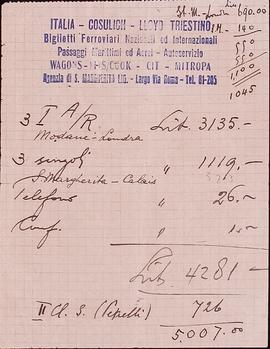 ITALIA - COSULICH - LLOYD TRIESTINO
Biglietti Ferroviari Nazionali ed Internazionali
Passaggi Marittimi ed Aerei - Autoservizio
WAGONS-LITS/COOK - CIT - MITROPA
Agenzia di S. MARGHERITA LIG. - Largo Via Roma - Tel. 81-205
690.00
140
550
550
1,100
1045
3 I A/R Lit. 3135.-
Modane - Londra
3 singoli " 1119,-
S. Margherita - Calais
Telefono " 26.-
" 1.-
Lit. 4281-
II Cl. S. 726
5,007.00